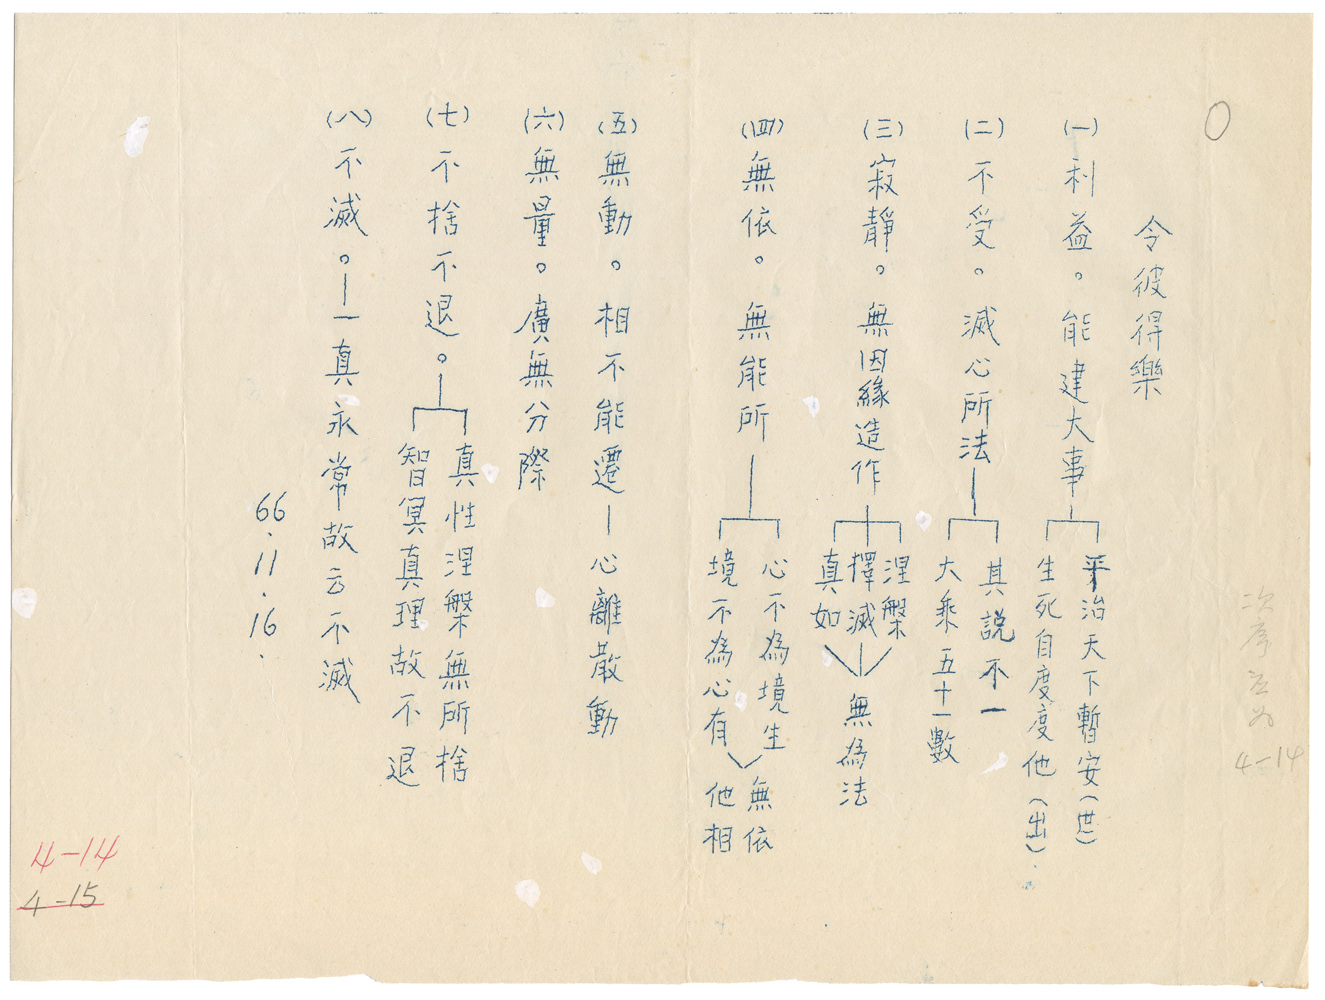 ○
令彼得樂
(一)利益。能建大事
平治天下暫安(世)
生死自度度他(出)
(二)不受。滅心所法
其説不一
大乘五十一數
(三)寂靜。無因緣造作
涅槃
擇滅
真如
無為法
(四)無依。無能所
心不為境生
境不為心有
無依
他相
(五)無動。相不能遷—心離散動
(六)無量。廣無分際
(七)不捨不退。
真性涅槃無所捨
智冥真理故不退
(八)不滅。—一真永常故云不滅
66.11.16.
次序應為
4-14
4-14
4-15